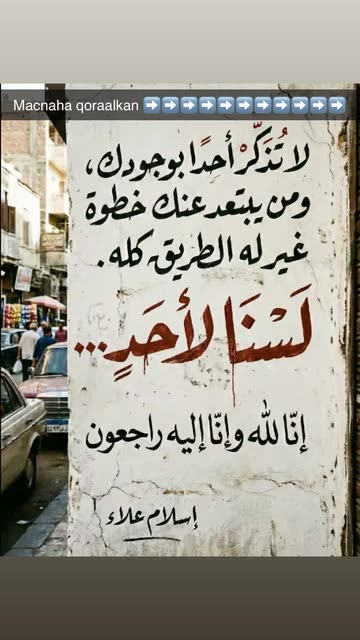 Macnaha qoraalkan ➡️➡️➡️➡️➡️➡️➡️➡️➡️➡️➡️
لا تُذكّرْ أحدًا بوجودك،
ومن يبتعد عنك خطوة
غير له الطريق كله.
لَسْنَا لأَحَدٍ...
إنّا لله وإنّا إليه راجعون
إسلام علاء